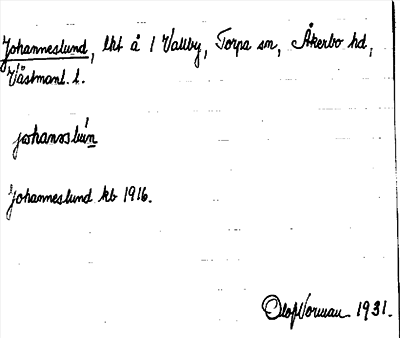 Johanneslund, lht å 1 Vallby, Torpa sn, Åkerbo hd,
Västmanl. l.
Johanneslund kb 1916.
Olof Norman 1931.